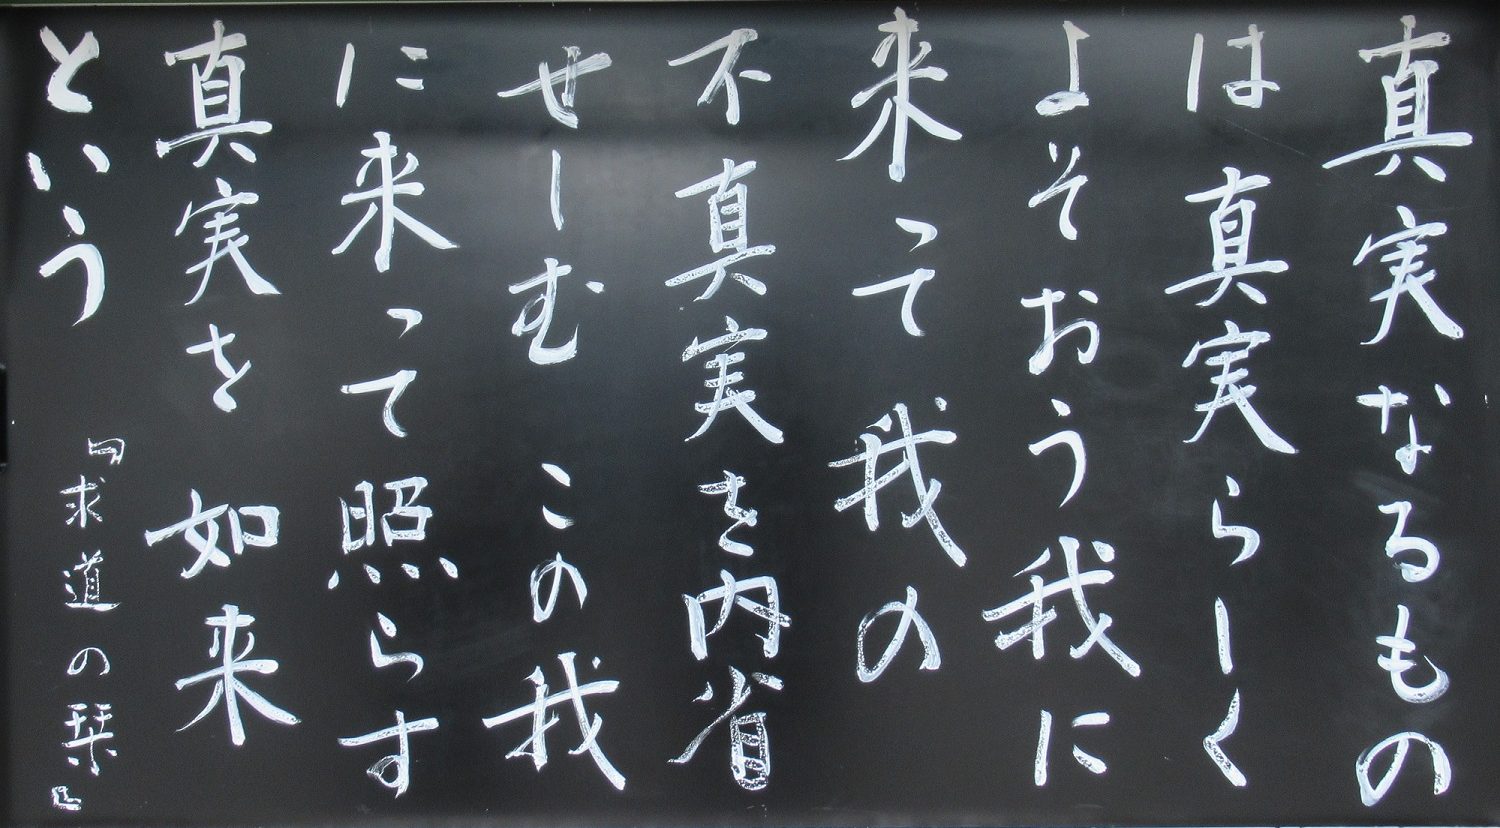 真実なるもの
は 真実らしく
よそおう我に
来って 我の
不真実を内省
せしむ この我
に来って 照らす
真実を 如来
という 『求道の栞』